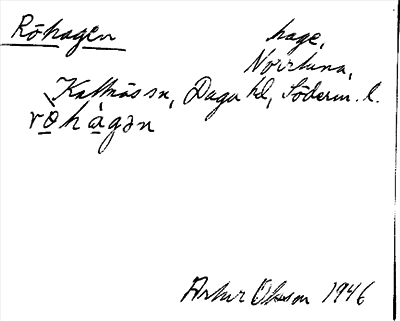 Röhagen hage,
Norrtuna,
Kattnäs sn, Daga hd, Söderm. l.
rö̀hàgən
Artur Olsson 1946